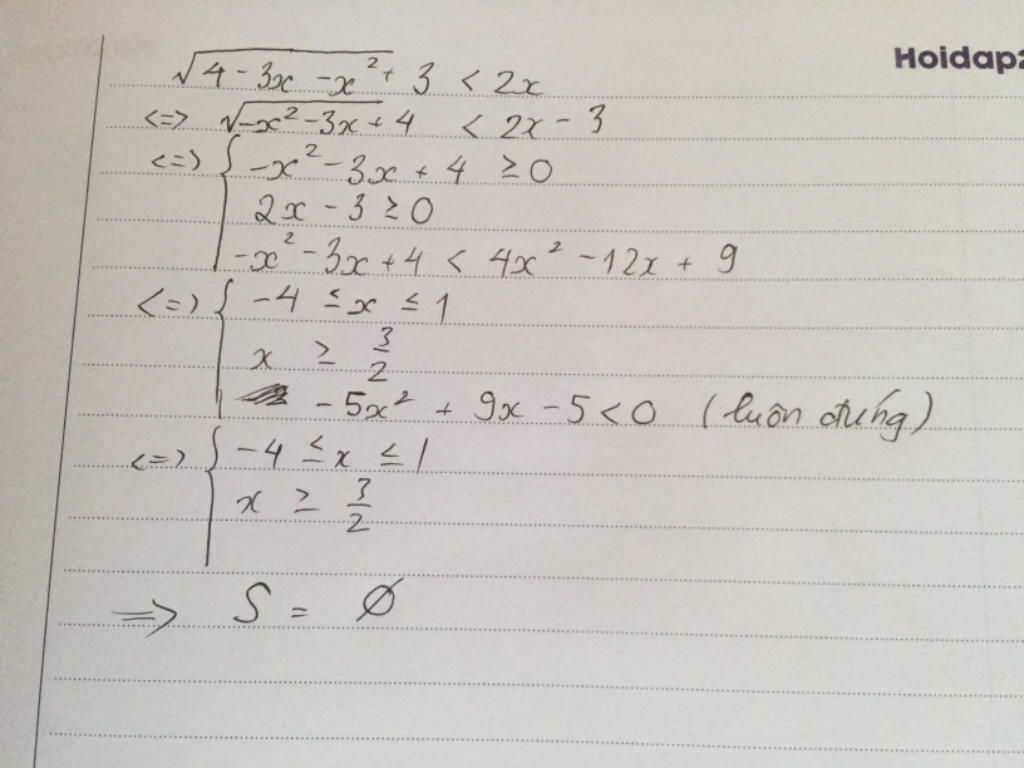 Hoidap2
√(4 - 3x - x²) + 3 < 2x
<=> √(-x² - 3x + 4) < 2x - 3
<=> { -x² - 3x + 4 ≥ 0
2x - 3 ≥ 0
-x² - 3x + 4 < 4x² - 12x + 9
<=> { -4 ≤ x ≤ 1
x ≥ 3/2
-5x² + 9x - 5 < 0 (luôn đưńg)
<=> { -4 ≤ x ≤ 1
x ≥ 3/2
=> S = Ø